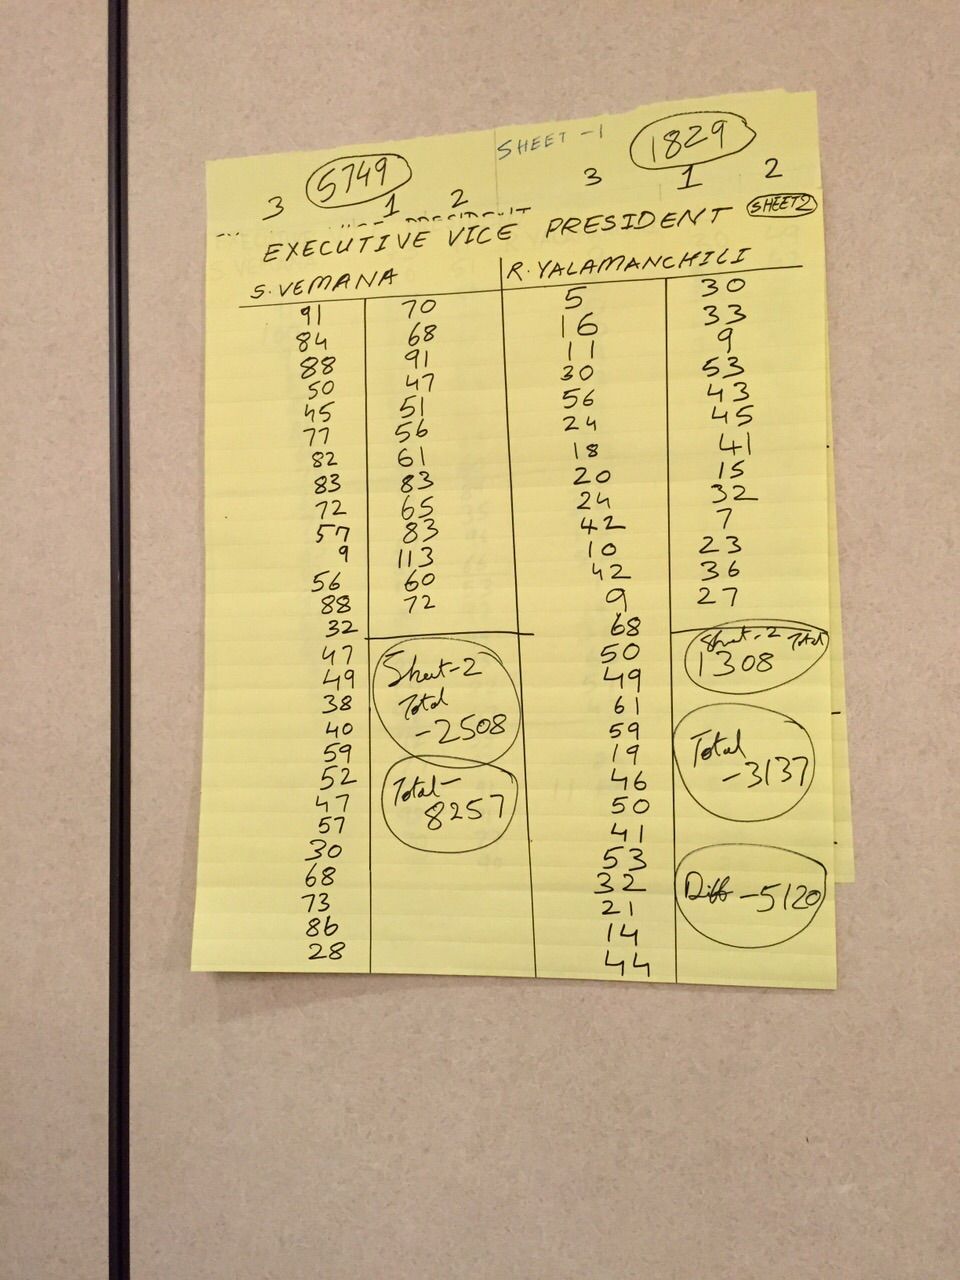 SHEET -1
5749
1829
3 1 2
3 1 2
EXECUTIVE VICE PRESIDENT SHEET2
S.VEMANA
91
84
88
50
45
77
82
83
72
57
9
56
88
32
47
49
38
40
59
52
47
57
30
68
73
86
28
70
68
91
47
51
56
61
83
65
83
113
60
72
Sheet-2
Total
-2508
Total-
8257
R.YALAMANCHILI
5
16
11
30
56
24
18
20
24
42
10
42
9
68
50
49
61
59
19
46
50
41
53
32
21
14
44
30
33
9
53
43
45
41
15
32
7
23
36
27
Sheet-2 Total
1308
Total
-3137
Diff -5120